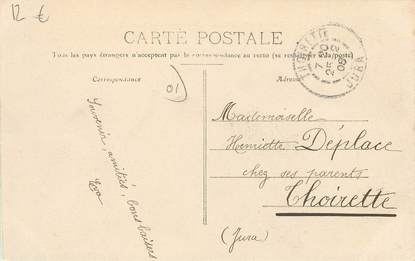 12 €
CARTE POSTALE
Tous les pays étrangers n'acceptent pas la correspondance au recto (se renseigner à la poste)
Correspondance
Adresse
THOIRETTE
7 30
25 2
08
JURA
01
Souvenir, amitiés, bons baisers
Mademoiselle
Henriette Déplace
chez ses parents
Thoirette
(Jura)